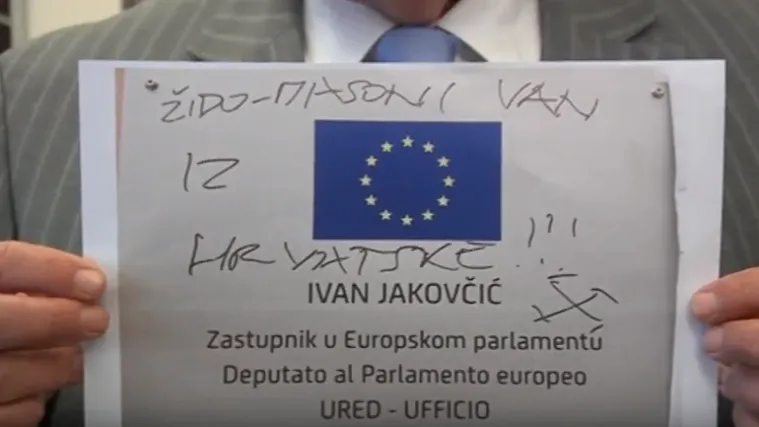 ŽIDO-MASONI VAN
IZ
HRVATSKE!!!
IVAN JAKOVČIĆ
Zastupnik u Europskom parlamentu
Deputato al Parlamento europeo
URED - UFFICIO